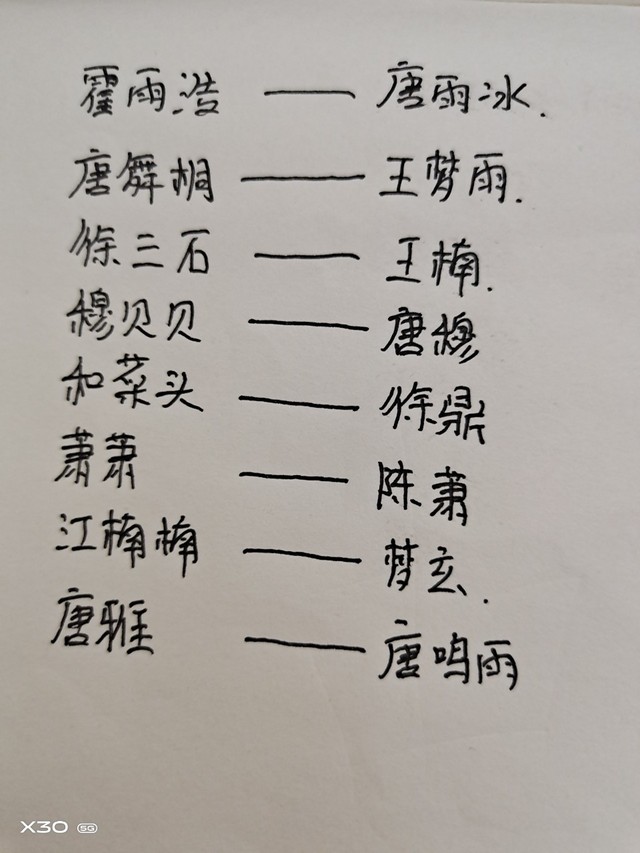 霍雨浩 —— 唐雨冰.
唐舞桐 —— 王梦雨.
徐三石 —— 王楠.
穆贝贝 —— 唐穆
和菜头 —— 徐鼎
萧萧 —— 陈萧
江楠楠 —— 梦玄.
唐雅 —— 唐鸣雨
X30 5G